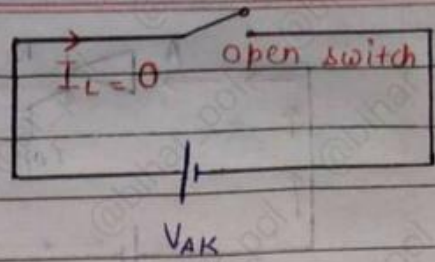 open switch
I_L = 0
V_AK